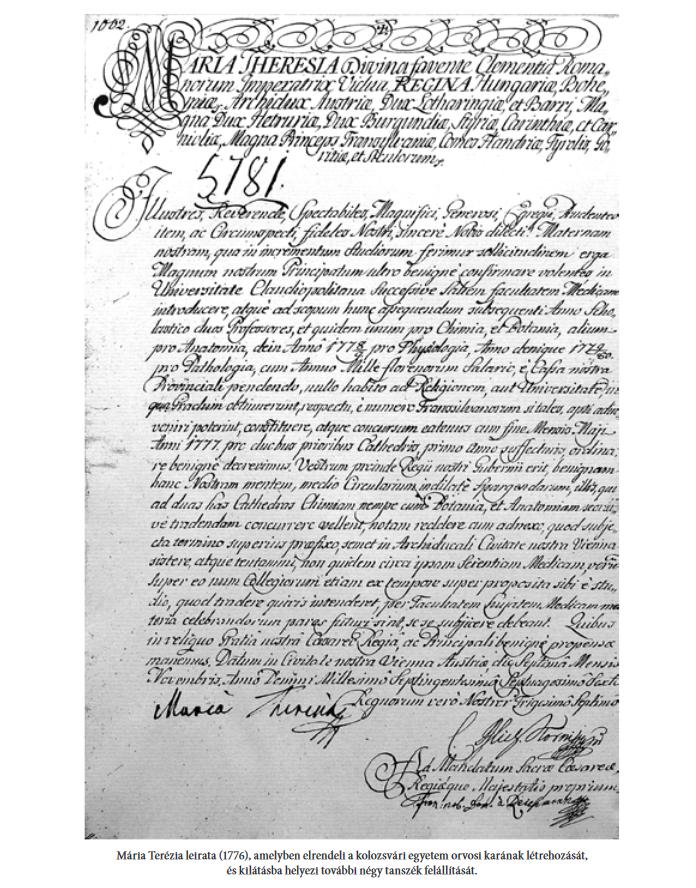 1002.
MARIA THERESIA Divina favente Clementia Roma-
norum Imperatrix Vidua, REGINA Hungariæ, Bohe-
miæ, Archidux Austriæ, Dux Lotharingiæ, et Barri, Ma-
gna Dux Hetruriæ, Dux Burgundiæ, Styriæ Carinthiæ, et Car-
nioliæ, Magna Princeps Transylvaniæ, Comes Flandriæ, Tyrolis, Go-
ritiæ, et
5781.
Illustres, Reverende, Spectabiles, Magnifici, Generosi, Egregii, Prudentes
item, ac Circumspecti, fideles Nostri, sincere Nobis dilecti! Maternam
nostram, qua in incrementum Studiorum ferimur sollicitudinem erga
Magnum nostrum Principatum ultro benigne confirmare volentes in
Universitate Claudiopolitana Successive Saltem facultatem Medicam
introducere, atque ad scopum hunc assequendum subsequenti Anno Scho-
lastico duos Professores, et quidem unum pro Chimia, et Botania, alium
pro Anatomia, dein Anno 1778 pro Physiologia, Anno denique
pro Pathologia, cum Annuo Mille florenorum Salario, e Cassa nostra
Provinciali pendendo, nullo habito ad Religionem, aut Universitatem in
qua Gradum obtinuerint, respectu, e numero Transsilvanorum si tales, apti adin-
veniri poterint, constituere, atque concursum eatenus cum fine Mensis Maji
Anni 1777. pro duobus prioribus Cathedris, primo Anno suffecturis, ordina-
re benigne decrevimus. Vestrum proinde Regii nostri Gubernii erit, benignam
hanc Nostram mentem, medio Circularium indilate Spargendarum, illis, qui
ad duas has Cathedras Chimiam nempe cum Botania, et Anatomiam
ve tradendam concurrere vellent, notam reddere cum adnexo, quod subje-
cta termino superius præfixo, semet in Archiducali Civitate nostra Vienna
sistere, atque tentamini, non quidem circa ipsam Scientiam Medicam, verum
Super eo num Collegiorum etiam ex tempore super proposita sibi e stu-
dio, quod tradere quivis intenderet, per Facultatem hujatem Medicam ma-
teria celebrandorum pares futuri sint, se se subjicere debeant. Quibus
in reliquo Gratia nostra Cæsareo Regia, ac Principali benigne propensæ
manemus. Datum in Civitate nostra Vienna Austriæ die Septima Mensis
Novembris, Anno Domini Millesimo Septingentesimo Septuagesimo Sexto
Regnorum vero Nostror Trigesimo Septimo
Maria Theresia
Ad Mandatum Sacræ Cæsareæ,
Regiæque Majestatis proprium
Mária Terézia leirata (1776), amelyben elrendeli a kolozsvári egyetem orvosi karának létrehozását,
és kilátásba helyezi további négy tanszék felállítását.